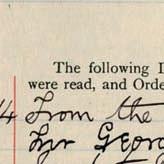 The following
were read, and Orde
4 From the
Geor